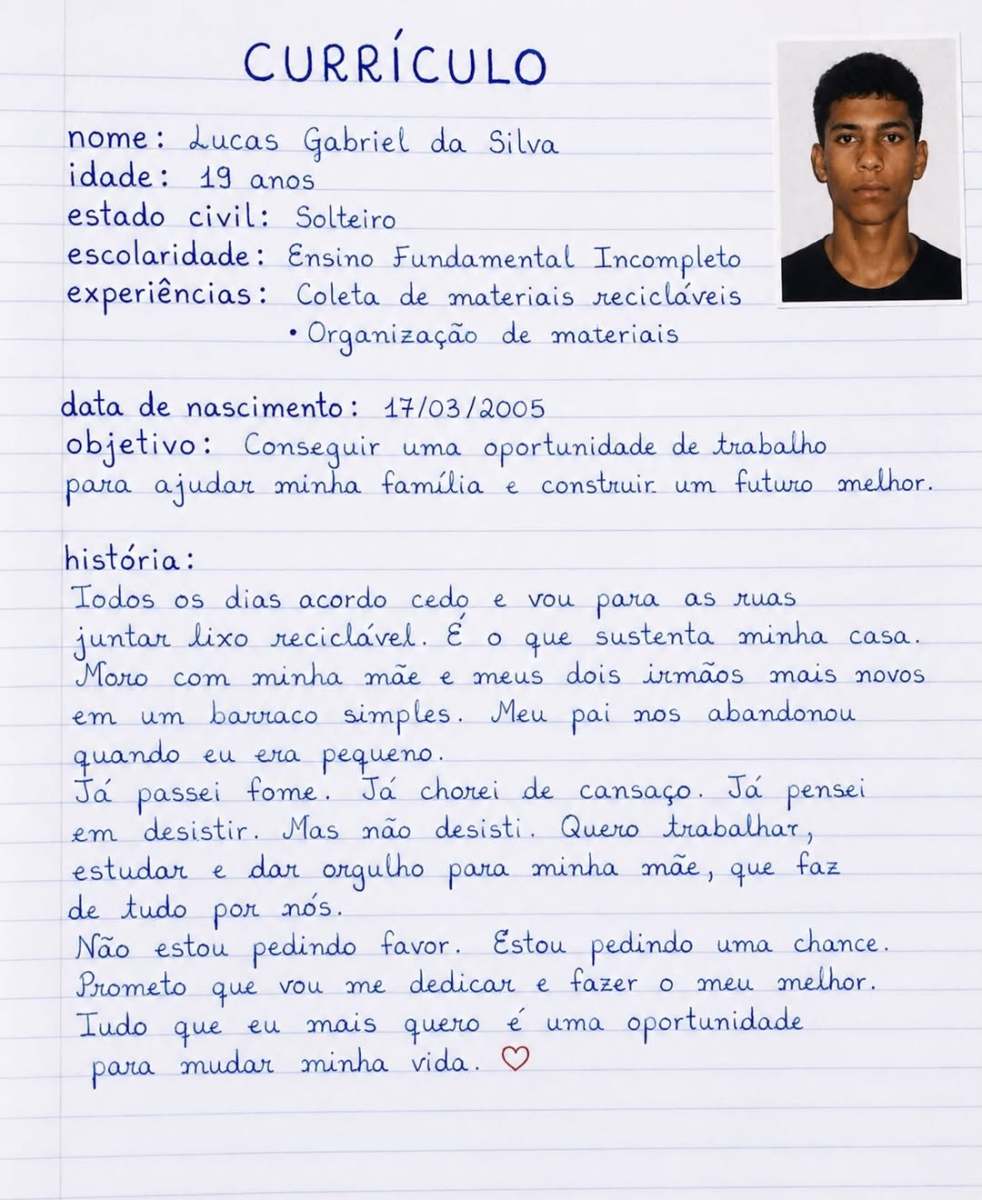 CURRÍCULO
nome: Lucas Gabriel da Silva
idade: 19 anos
estado civil: Solteiro
escolaridade: Ensino Fundamental Incompleto
experiências: Coleta de materiais recicláveis
• Organização de materiais
data de nascimento: 17/03/2005
objetivo: Conseguir uma oportunidade de trabalho
para ajudar minha família e construir um futuro melhor.
história:
Todos os dias acordo cedo e vou para as ruas
juntar lixo reciclável. É o que sustenta minha casa.
Moro com minha mãe e meus dois irmãos mais novos
em um barraco simples. Meu pai nos abandonou
quando eu era pequeno.
Já passei fome. Já chorei de cansaço. Já pensei
em desistir. Mas não desisti. Quero trabalhar,
estudar e dar orgulho para minha mãe, que faz
de tudo por nós.
Não estou pedindo favor. Estou pedindo uma chance.
Prometo que vou me dedicar e fazer o meu melhor.
Tudo que eu mais quero é uma oportunidade
para mudar minha vida. ♡